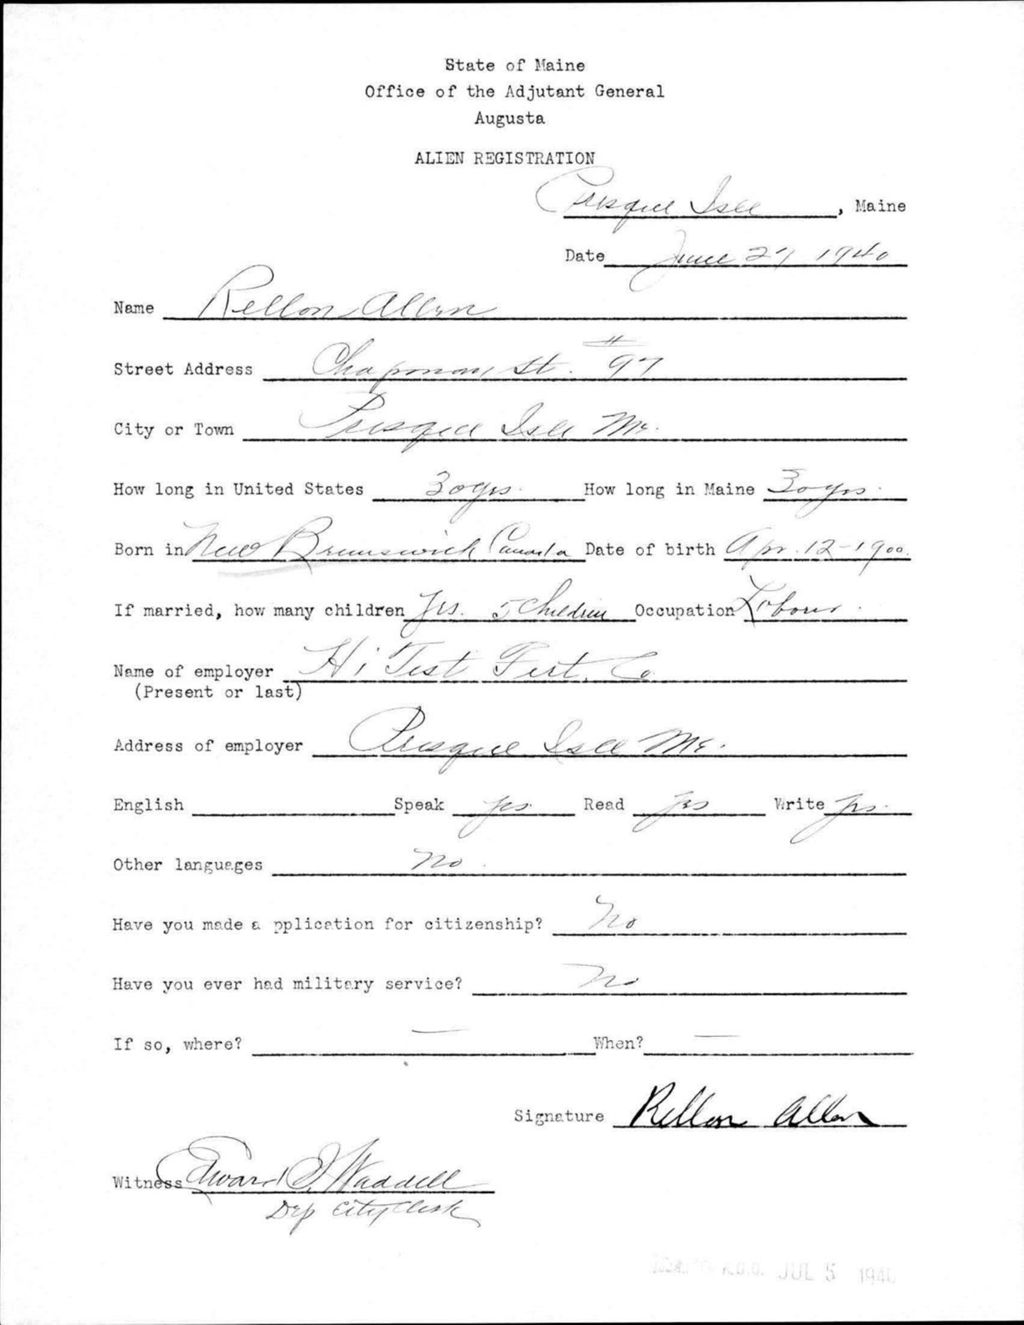 State of Maine
Office of the Adjutant General
Augusta
ALIEN REGISTRATION
Presque Isle, Maine
Date June 27 1940
Name Rellon Allen
Street Address Chapman St. # 97
City or Town Presque Isle Me.
How long in United States 30 yrs. How long in Maine 30 yrs.
Born in New Brunswick Canada Date of birth Apr. 12 - 1900.
If married, how many children Yes. 5 Children Occupation Laborer.
Name of employer Hi Test Fert. Co
(Present or last)
Address of employer Presque Isle Me.
English Speak yes. Read yes Write yes.
Other languages No.
Have you made a pplication for citizenship? No
Have you ever had military service? No
If so, where? — When? —
Signature Rellon Allen
Witness Edward I. Waddell
Dep City Clerk
A.G.O. JUL 5 1940